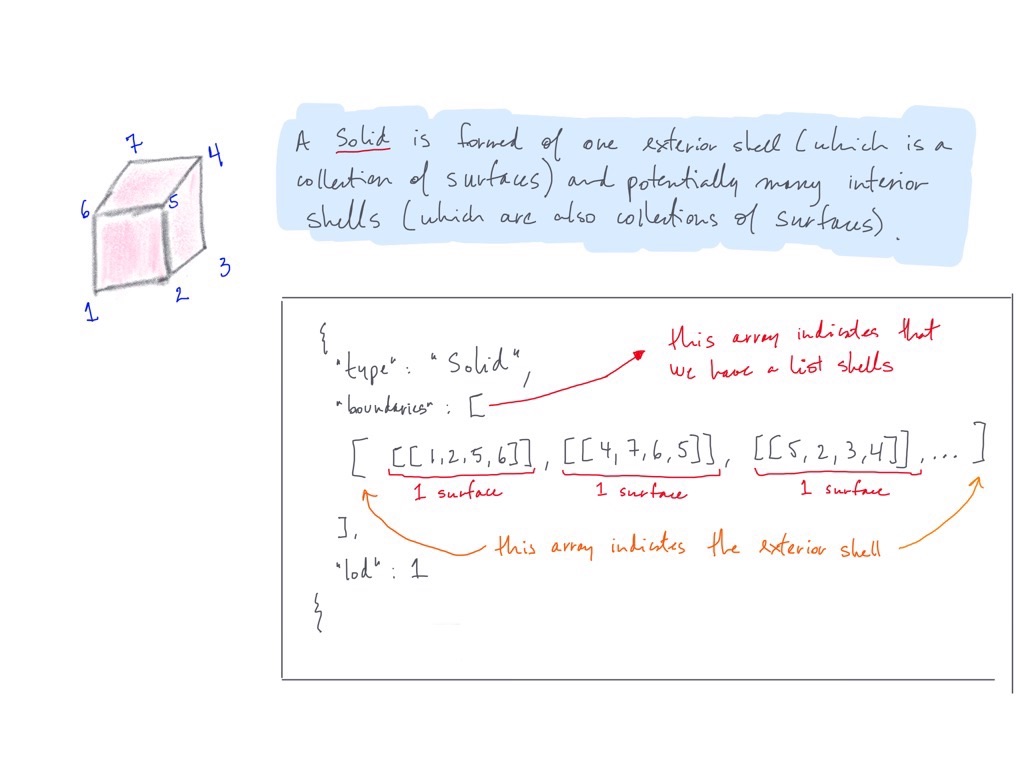 A Solid is formed of one exterior shell (which is a
collection of surfaces) and potentially many interior
shells (which are also collections of surfaces).
7
4
6
5
3
2
1
{
"type": "Solid",
"boundaries": [
this array indicates that
we have a list shells
[ [[1,2,5,6]], [[4,7,6,5]], [[5,2,3,4]], ... ]
1 surface 1 surface 1 surface
],
this array indicates the exterior shell
"lod": 1
{